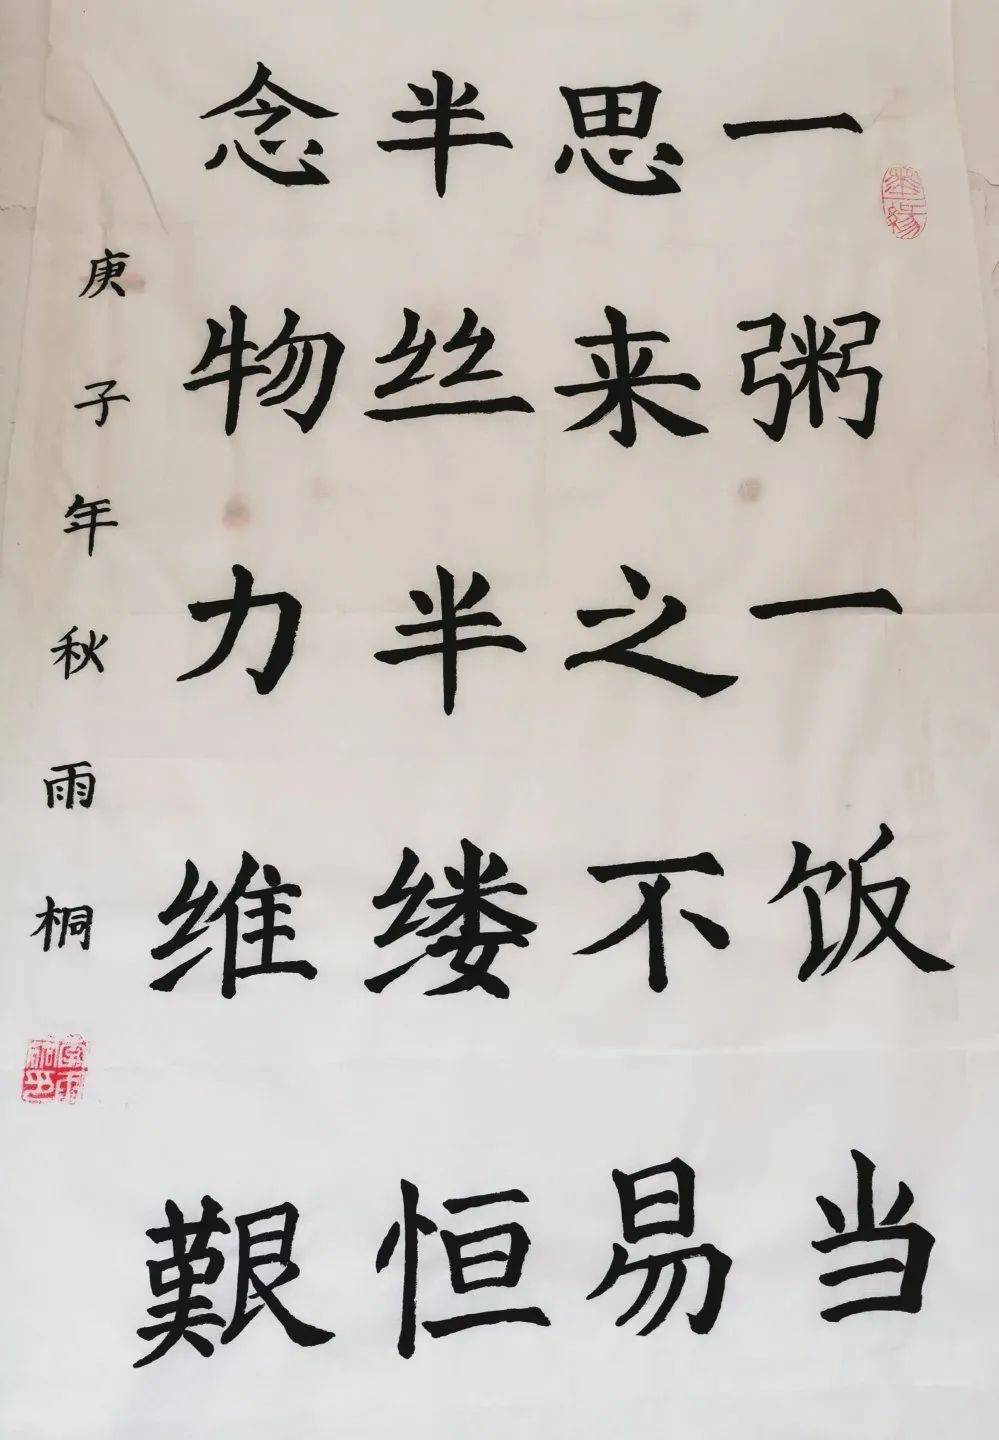 一粥一饭当
思来之不易
半丝半缕恒
念物力维艱
庚子年秋雨桐